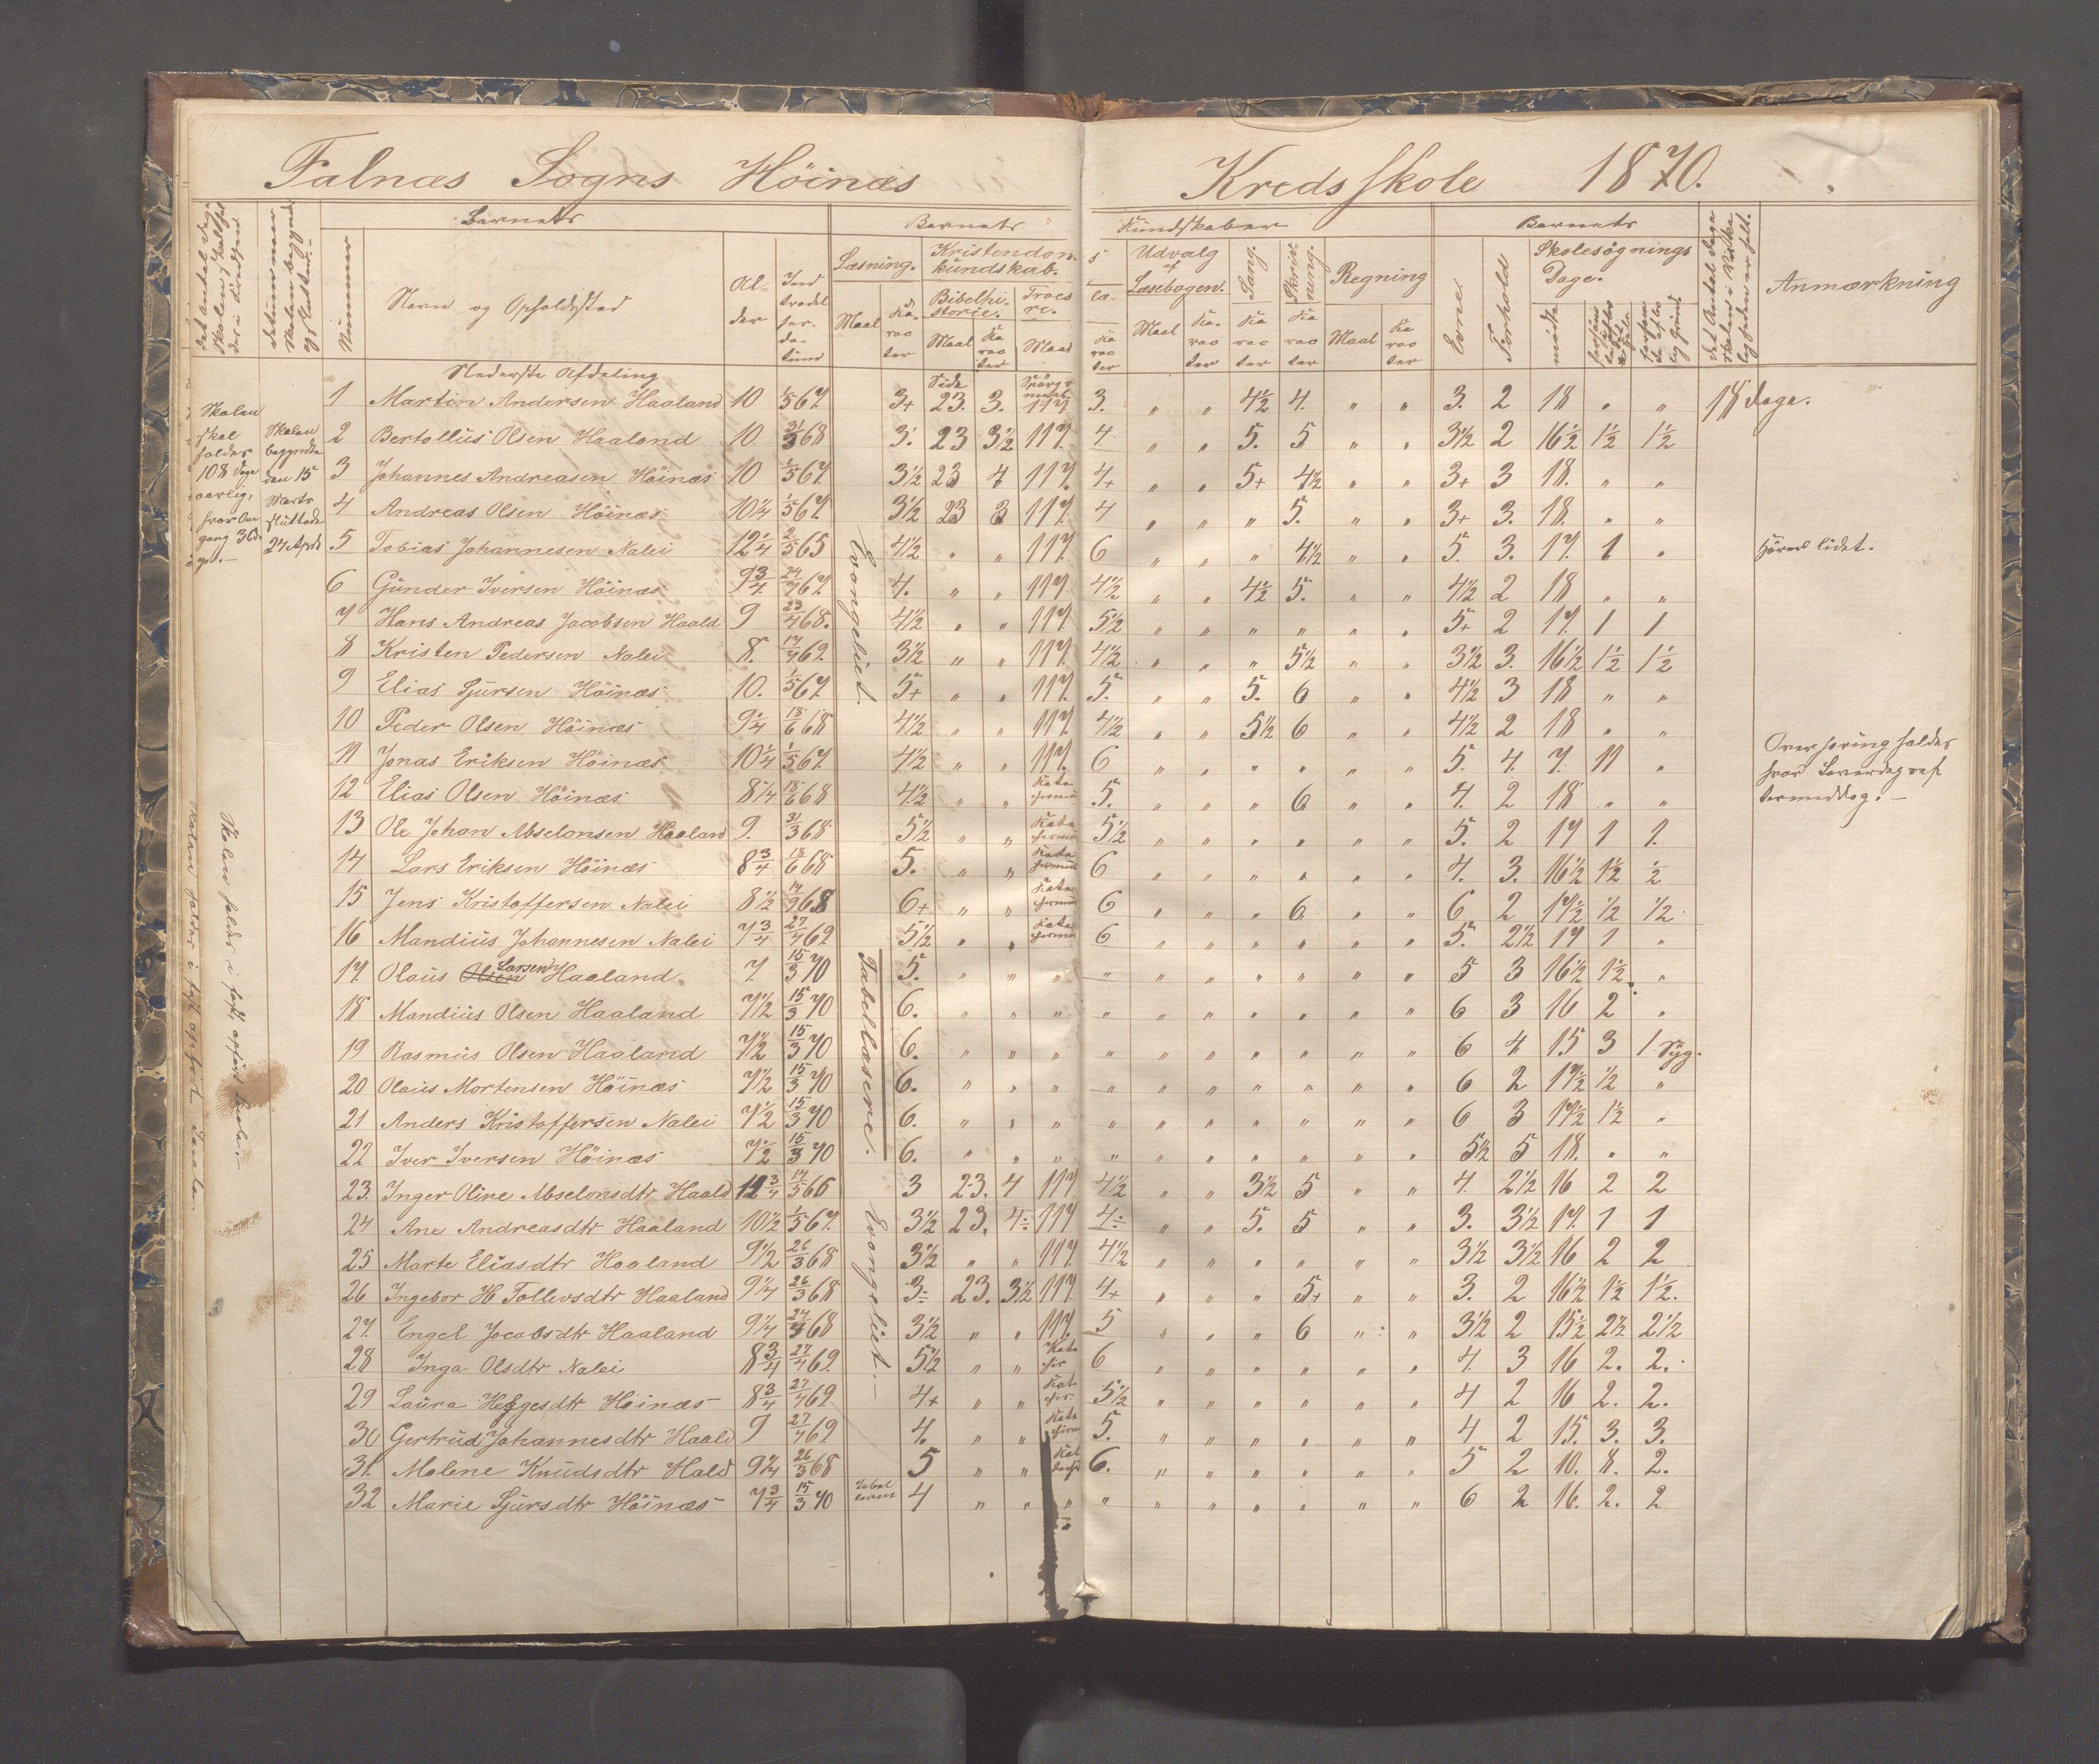 Falnæs Sogns Höinæs Kredsskole 1870.
Barnets
Barnets
Kundskaber
Barnets
Nummer
Navn og Opholdssted
Al- der
Ind tradel ses- da- tum
Læsning.
Kristendoms kundskab.
Bibelhi- storie.
Troes
Maal
Ka- rac ter
Maal
Ka rac ter
Maal
Ka rac ter
Udvalg af Læsebogen.
Maal
Ka- rac ter
Sang.
Ka rac ter
Skriv- ning.
Ka rac ter
Regning
Maal
Ka rac ter
Evne.
Forhold
Skolesøgnings Dage.
mödte
Anmærkning
Nederste Afdeling
Side
Skolen skal holdes 108 Dage aarlig, hver Om gang 36 da ge.—
Skolen begyndte den 15 Marts sluttede 24 April
1 Martin Andersen Haaland 10 1/5 67. 3+ 23. 3. 117 3. " " 4½ 4. " " 3. 2 18 " " 18 dage.
2 Bertollius Olsen Haaland 10 31/3 68 3. 23 3½ 117. 4 " " 5. 5 " " 3½ 2 16½ 1½ 1½
3 Johannes Andreasen Höinæs 10 1/5 67. 3½ 23 4 117. 4+ " " 5+ 4½ " " 3+ 3 18. " "
4 Andreas Olsen Höinæs 10¼ 1/5 67. 3½ 23 3 117. 4 " " " 5. " " 3+ 3. 18. " "
5 Tobias Johannesen Nalei 12¼ 2/5 65 4½ " " 117. 6 " " " 4½ " " 5. 3. 17. 1 " Hörer lidet.
6 Gunder Iversen Höinæs 9¾ 29/7 67. 4. " " 117 4½ " " 4½ 5. " " 4½ 2 18 " "
7 Hans Andreas Jacobsen Haald 9 23/4 68. 4½ " " 117 5½ " " " " " " 5+ 2 17. 1 1
8 Kristen Pedersen Nalei 8. 17/7 69. 3½ " " 117. 4½ " " " 5½ " " 3½ 3. 16½ 1½ 1½
9 Elias Sjursen Höinæs 10. 1/5 67. 5+ " " 117. 5. " " 5. 6 " " 4½ 3 18 " "
10 Peder Olsen Höinæs 9¼ 18/6 68 4½ " " 117. 4½ " " 5½ 6 " " 4½ 2 18 " "
11 Jonas Eriksen Höinæs 10¼ 1/5 67. 4½ " " 117. 6 " " " " " " 5. 4. 7. 11 "
Overhöring holdes hver Løverdag ef termiddag.—
12 Elias Olsen Höinæs 8¼ 18/6 68 4½ " " 5. " " " 6 " " 4. 2 18 " "
13 Ole Johan Abselonsen Haaland 9. 31/3 68 5½ " " 5½ " " " " " " 5. 2 17 1 1.
14 Lars Eriksen Höinæs 8¾ 18/6 68 5. " " 6 " " " " " " 4. 3. 16½ 1½ ½
15 Jens Kristoffersen Nalei 8½ 68 6+ " " 6 " " " 6 " " 6 2 17½ ½ ½
16 Mandius Johannesen Nalei 7¾ 27/4 69 5½ " " 6 " " " " " " 5. 2½ 17 1 "
17. Olaus Olsen Larsen Haaland. 7. 15/3 70 5. " " " " " " " " " " 5 3 16½ 1½ "
18 Mandius Olsen Haaland 7½ 15/3 70 6. " " " " " " " " " " 6 3 16 2 "
19 Rasmus Olsen Haaland 7½ 15/3 70 6. " " " " " " " " " " 6 4 15 3 1 Syg.
20 Olaus Mortensen Höinæs 7½ 15/3 70 6. " " " " " " " " " " 6 2 17½ ½ "
21 Anders Kristoffersen Nalei 7½ 15/3 70 6. " " " " " " " " " " 6 3 17½ 1½ "
22 Iver Iversen Höinæs 7½ 15/3 70 6. " " " " " " " " " " 5½ 5 18. " "
23. Inger Oline Abselonsdtr Haald 12¾ 17/5 65 3 23. 4 117 4½ " " 3½ 5 " " 4. 2½ 16 2 2
24 Ane Andreasdtr Haaland 10½ 1/5 67. 3½ 23. 4÷ 117 4÷ " " 5. 5 " " 3. 3½ 17. 1 1
25 Marte Eliasdtr Haaland 9½ 26/3 68 3½ " " 117. 4½ " " " " " " 3½ 3½ 16 2 2
26 Ingebor H Tollevsdtr Haaland 9¼ 26/3 68 3÷ 23. 3½ 117. 4+ " " " 5+ " " 3. 2 16½ 1½ 1½.
27. Engel Jacobsdtr Haaland 9¼ 68 3½ " " 117. 5 " " " 6 " " 3½ 2 15½ 2½ 2½
28 Inga Olsdtr Nalei 8¾ 27/4 69. 5½ " " 6 " " " " " " 4. 3 16 2. 2.
29 Laura Helgesdtr Höinæs 8¾ 27/4 69 4+ " " 5½ " " " " " " 4 2 16 2. 2.
30 Gertrud Johannesdtr Haald 9 27/4 69. 4. " " 5. " " " " " " 4 2 15. 3. 3.
31. Malene Knudsdtr Hald 9¼ 26/3 68 5 " " 6. " " " " " " 5 2 10. 8. 2.
32 Marie Sjursdtr Höinæs 7¾ 15/3 70 4 " " " " " " " " " " 6 2 16. 2. 2
Evangeliet.
Tabellæsere.
Evangeliet.—